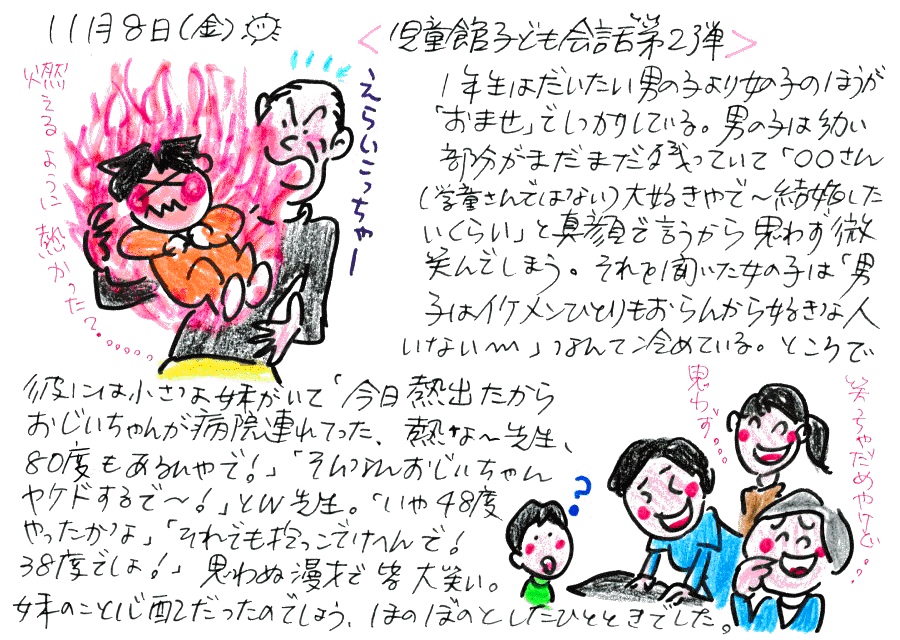 11月8日(金)
<児童館子ども会話第2弾>
燃えるように熱かった?……
えらいこっちゃー
1年生はだいたい男の子より女の子のほうが
「おませ」でしっかりしている。男の子は幼い
部分がまだまだ残っていて「〇〇さん
(学童さんではない)大好きやで〜結婚した
いくらい」と真顔で言うから思わず微
笑んでしまう。それを聞いた女の子は「男
子はイケメンひとりもおらんから好きな人
いない〜」なんて冷めている。ところで
彼には小さな妹がいて「今日熱出たから
おじいちゃんが病院連れてった、熱な〜先生、
80度もあるんやで!」「そんなんおじいちゃん
ヤケドするで〜!」とW先生。「いや48度
やったかな」「それでも抱っこでけへんで!
38度でしょ!」思わぬ漫才で皆大笑い。
妹のこと心配だったのでしょう、ほのぼのとしたひとときでした。
?
思わず…
笑っちゃだめやけど…